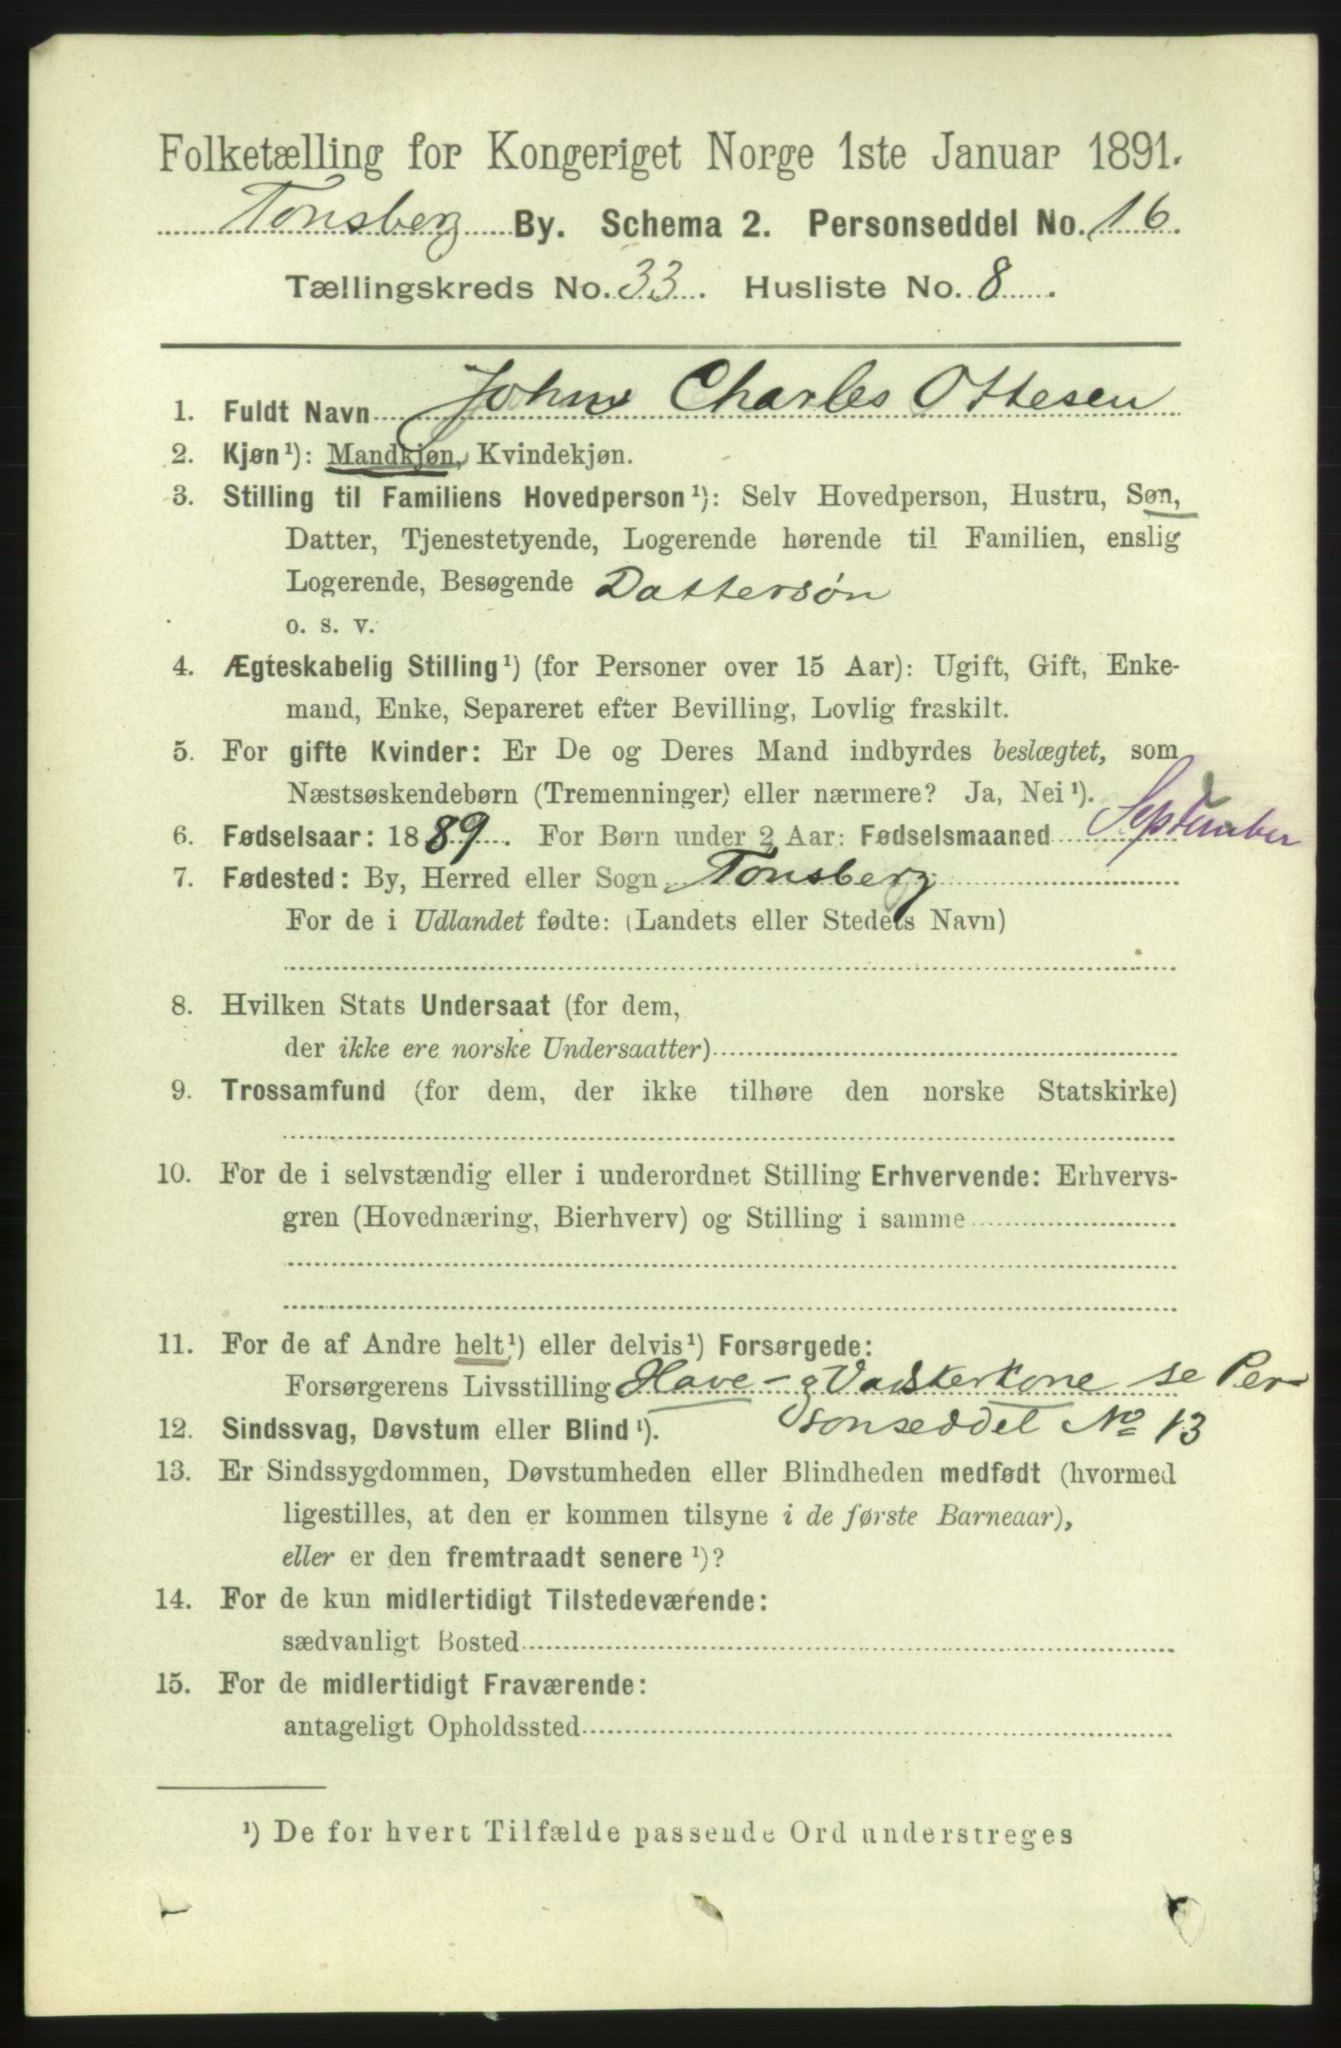 Folketælling for Kongeriget Norge 1ste Januar 1891.
Tønsberg By. Schema 2. Personseddel No. 16.
Tællingskreds No. 33. Husliste No. 8.
1. Fuldt Navn John Charles Ottesen
2. Kjøn¹): Mandkjøn, Kvindekjøn.
3. Stilling til Familiens Hovedperson¹): Selv Hovedperson, Hustru, Søn,
Datter, Tjenestetyende, Logerende hørende til Familien, enslig
Logerende, Besøgende Dattersøn
o. s. v.
4. Ægteskabelig Stilling¹) (for Personer over 15 Aar): Ugift, Gift, Enke-
mand, Enke, Separeret efter Bevilling, Lovlig fraskilt.
5. For gifte Kvinder: Er De og Deres Mand indbyrdes beslægtet, som
Næstsøskendebørn (Tremenninger) eller nærmere? Ja, Nei¹).
6. Fødselsaar: 1889. For Børn under 2 Aar: Fødselsmaaned September
7. Fødested: By, Herred eller Sogn Tønsberg
For de i Udlandet fødte: (Landets eller Stedets Navn)
8. Hvilken Stats Undersaat (for dem,
der ikke ere norske Undersaatter)
9. Trossamfund (for dem, der ikke tilhøre den norske Statskirke)
10. For de i selvstændig eller i underordnet Stilling Erhvervende: Erhvervs-
gren (Hovednæring, Bierhverv) og Stilling i samme
11. For de af Andre helt¹) eller delvis¹) Forsørgede:
Forsørgerens Livsstilling Have- g Vadskerkone se Per-
sonseddel No 13
12. Sindssvag, Døvstum eller Blind¹).
13. Er Sindssygdommen, Døvstumheden eller Blindheden medfødt (hvormed
ligestilles, at den er kommen tilsyne i de første Barneaar),
eller er den fremtraadt senere¹)?
14. For de kun midlertidigt Tilstedeværende:
sædvanligt Bosted
15. For de midlertidigt Fraværende:
antageligt Opholdssted
¹) De for hvert Tilfælde passende Ord understreges